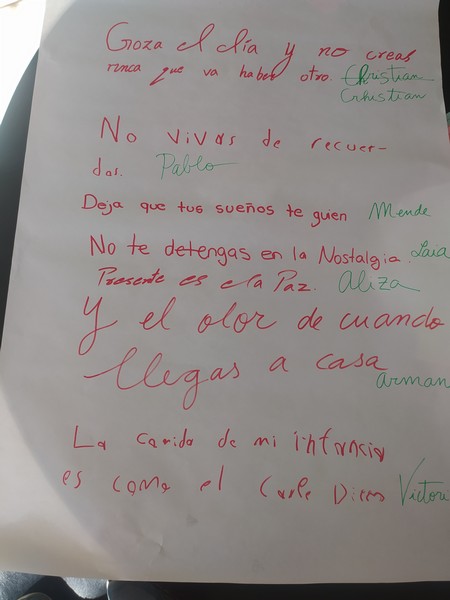 Goza el día y no creas
nunca que va haber otro. Christian
Crhistian
No vivas de recuer-
das. Pablo
Deja que tus sueños te guien Mende
No te detengas en la Nostalgia. Lara
Presente es e la Paz. Aliza
Y el olor de cuando
llegas a casa
arman
La de mi infancia
es como el Victor